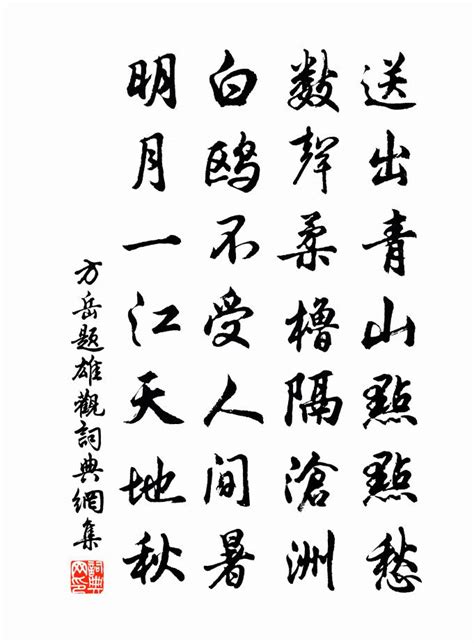 送出青山點點愁
數聲柔櫓隔滄洲
白鸥不受人间暑
明月一江天地秋
方岳題雄觀詞典網集
詞典